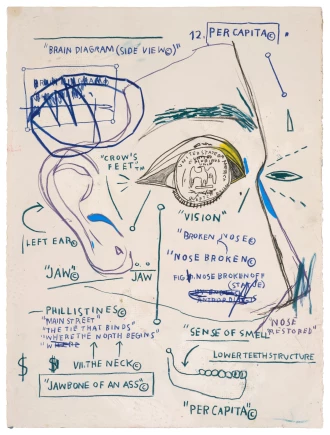 12. PER CAPITA©
"BRAIN DIAGRAM (SIDE VIEW©)"
"CROW'S
FEET."
"VISION"
"BROKEN NOSE©
"NOSE BROKEN©
NOSE BROKEN OFF
LEFT EAR©
"JAW©
JAW
"NOSE
RESTORED"
PHILLISTINES©
"MAIN STREET"
"THE TIE THAT BINDS"
"WHERE THE NORTH BEGINS"
"SENSE OF SMELL"
LOWER TEETH STRUCTURE
$ $ VII. THE NECK©
"JAWBONE OF AN ASS"©
"PER CAPITA"©